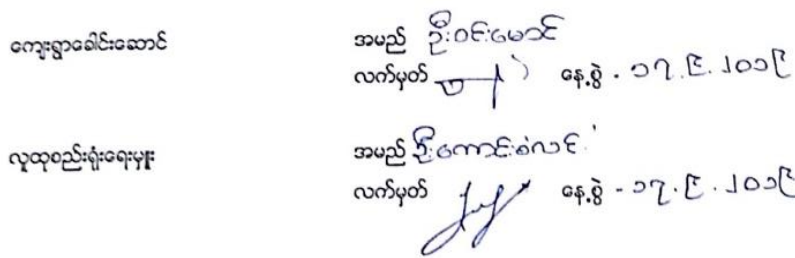 ကျေးရွာခေါင်းဆောင် အမည် ဦးဝင်းမောင်
လက်မှတ် နေ့စွဲ - ၁၇.၉.၂၀၁၉
လူထုစည်းရုံးရေးမှူး အမည် ဦးကောင်းစံလင်း
လက်မှတ် နေ့စွဲ - ၁၇.၉.၂၀၁၉